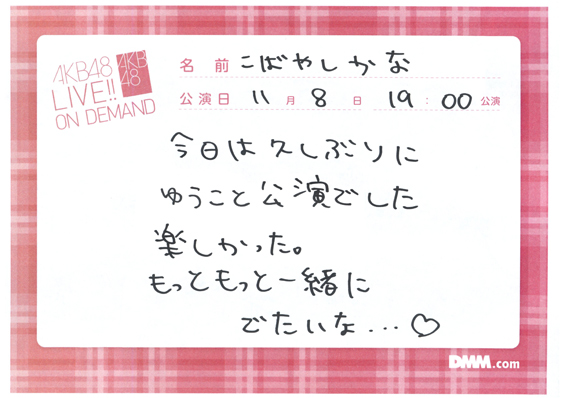 AKB48
LIVE!!
ON DEMAND
AKB
48
名前 こばやしかな
公演日 11月8日 19:00公演
今日は久しぶりに
ゆうこと公演でした
楽しかった。
もっともっと一緒に
でたいな...♡
DMM.com